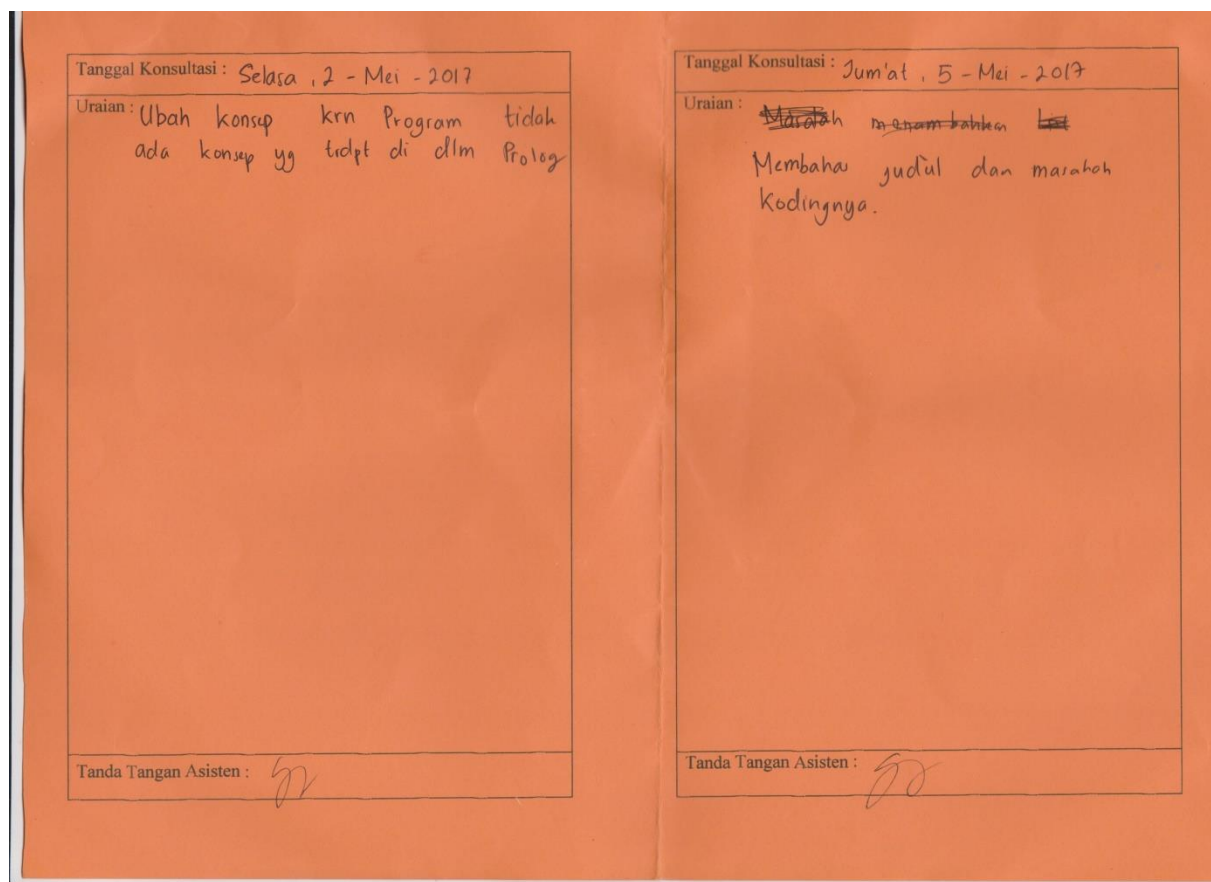 Tanggal Konsultasi : Selasa , 2 - Mei - 2017
Uraian : Ubah konsep krn Program tidak
ada konsep yg trdpt di dlm Prolog
Tanda Tangan Asisten :
Tanggal Konsultasi : Jum'at , 5 - Mei - 2017
Uraian : Masalah menambahkan
Membahas judul dan masalah
kodingnya.
Tanda Tangan Asisten :